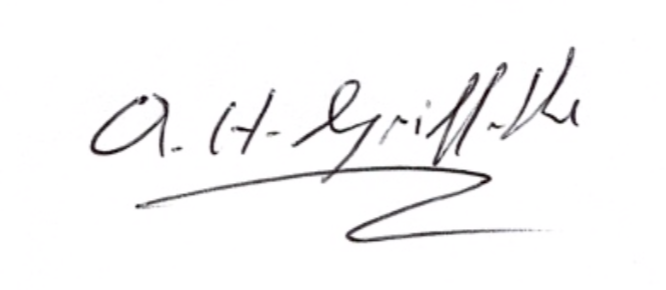 A. H. Griffiths